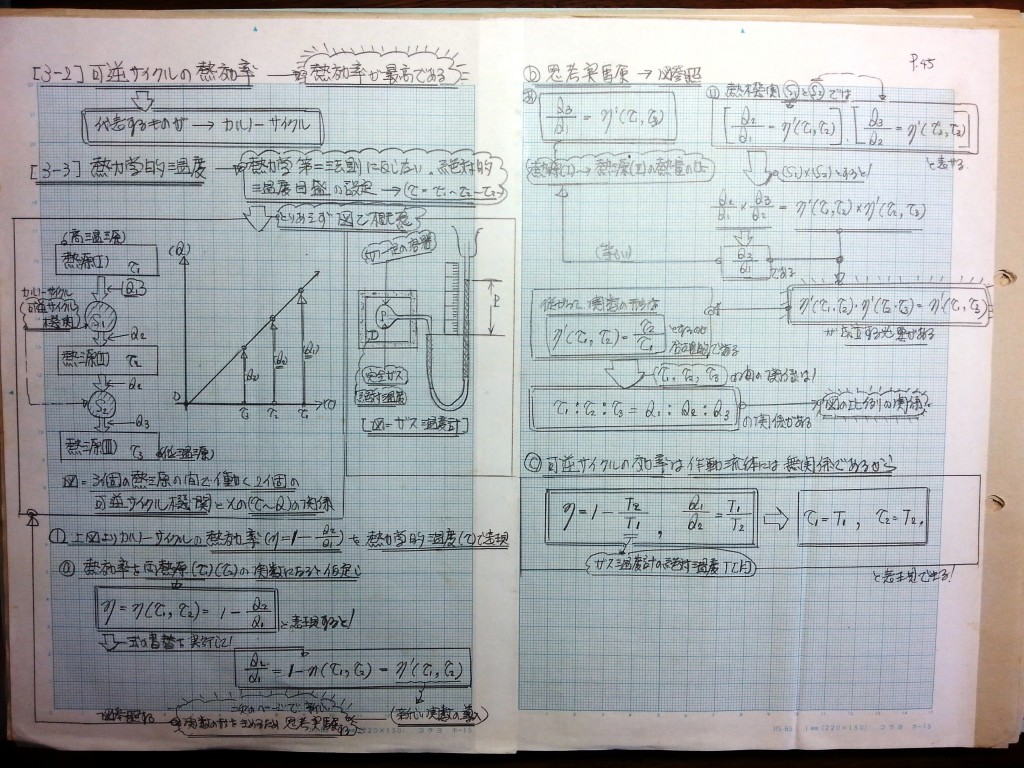 [3-2] 可逆サイクルの熱効率 → 熱効率が最高である
代表するものが → カルノーサイクル
[3-3] 熱力学的温度 → 熱力学第二法則に反しない、絶対的
温度目盛の設定 → (τ = τ1~τ2~τ3)
とりあえず図で概念
(高温源)
熱源(I) τ1
カルノーサイクル
可逆サイクル
機関
Q1
S1
Q2
熱源(II) τ2
Q2
S2
Q3
熱源(III) τ3 (低温源)
(Q)
0
(Q3)
(Q2)
(Q1)
τ3 τ2 τ1 (τ)
一定の容器
P
D
P
完全ガス
絶対温度
[図=ガス温度計]
図=3個の熱源の間で働く2個の
可逆サイクル機関とその(τ~Q)の関係
① 上図よりカルノーサイクルの熱効率(η=1-Q2/Q1)を熱力学的温度(τ)で表現
ⓐ 熱効率を両熱源(τ1)(τ2)の関数になると仮定し
η = η(τ1, τ2) = 1 - Q2/Q1 と表現すると!
式の書替を実行して!
Q2/Q1 = 1 - η(τ1, τ2) = η'(τ1, τ2)
(新しい関数の導入)
次のページで新しい
関数の形を求めるため思考実験
図参照
P.45
ⓑ 思考実験 → 図参照
Q3/Q1 = η'(τ1, τ3)
熱機関(S1)と(S2)では
[Q2/Q1 = η'(τ1, τ2)]・[Q3/Q2 = η'(τ2, τ3)]
と表せる。
熱源(I)→熱源(III)の熱量の比
(S1)×(S2)とすると!
Q2/Q1 × Q3/Q2 = η'(τ1, τ2) × η'(τ2, τ3)
(等しい)
Q3/Q1 である
η'(τ1, τ2)・η'(τ2, τ3) = η'(τ1, τ3)
が成立する必要がある
従がって関数の形は
η'(τ1, τ2) = τ2/τ1 とするのが
合理的である
(τ1, τ2, τ3)の間の関係は!
τ1:τ2:τ3 = Q1:Q2:Q3
の関係がある
図の比例の関係
ⓒ 可逆サイクルの効率は作動流体には無関係であるから
η = 1 - T2/T1 , Q1/Q2 = T1/T2 ⇒ τ1 = T1 , τ2 = T2 ,
ガス温度計の絶対温度T[K]
と表現できる!
(220×150) コクヨ ホ-15
1mm(220×150) コクヨ ホ-15